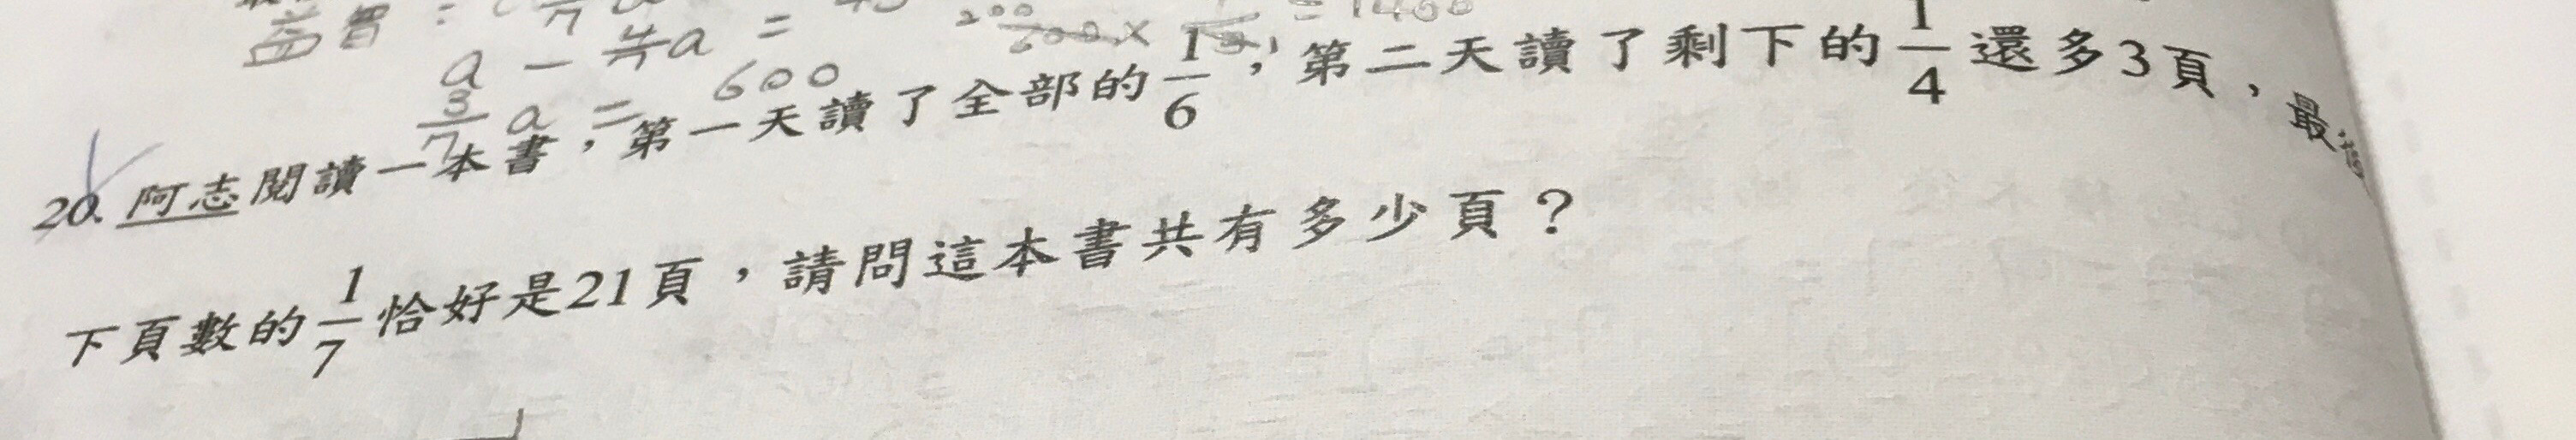 益智：
a - 4/7 a =
3/7 a = 600
20. 阿志閱讀一本書，第一天讀了全部的1/6，第二天讀了剩下的1/4還多3頁，最
下頁數的1/7恰好是21頁，請問這本書共有多少頁？